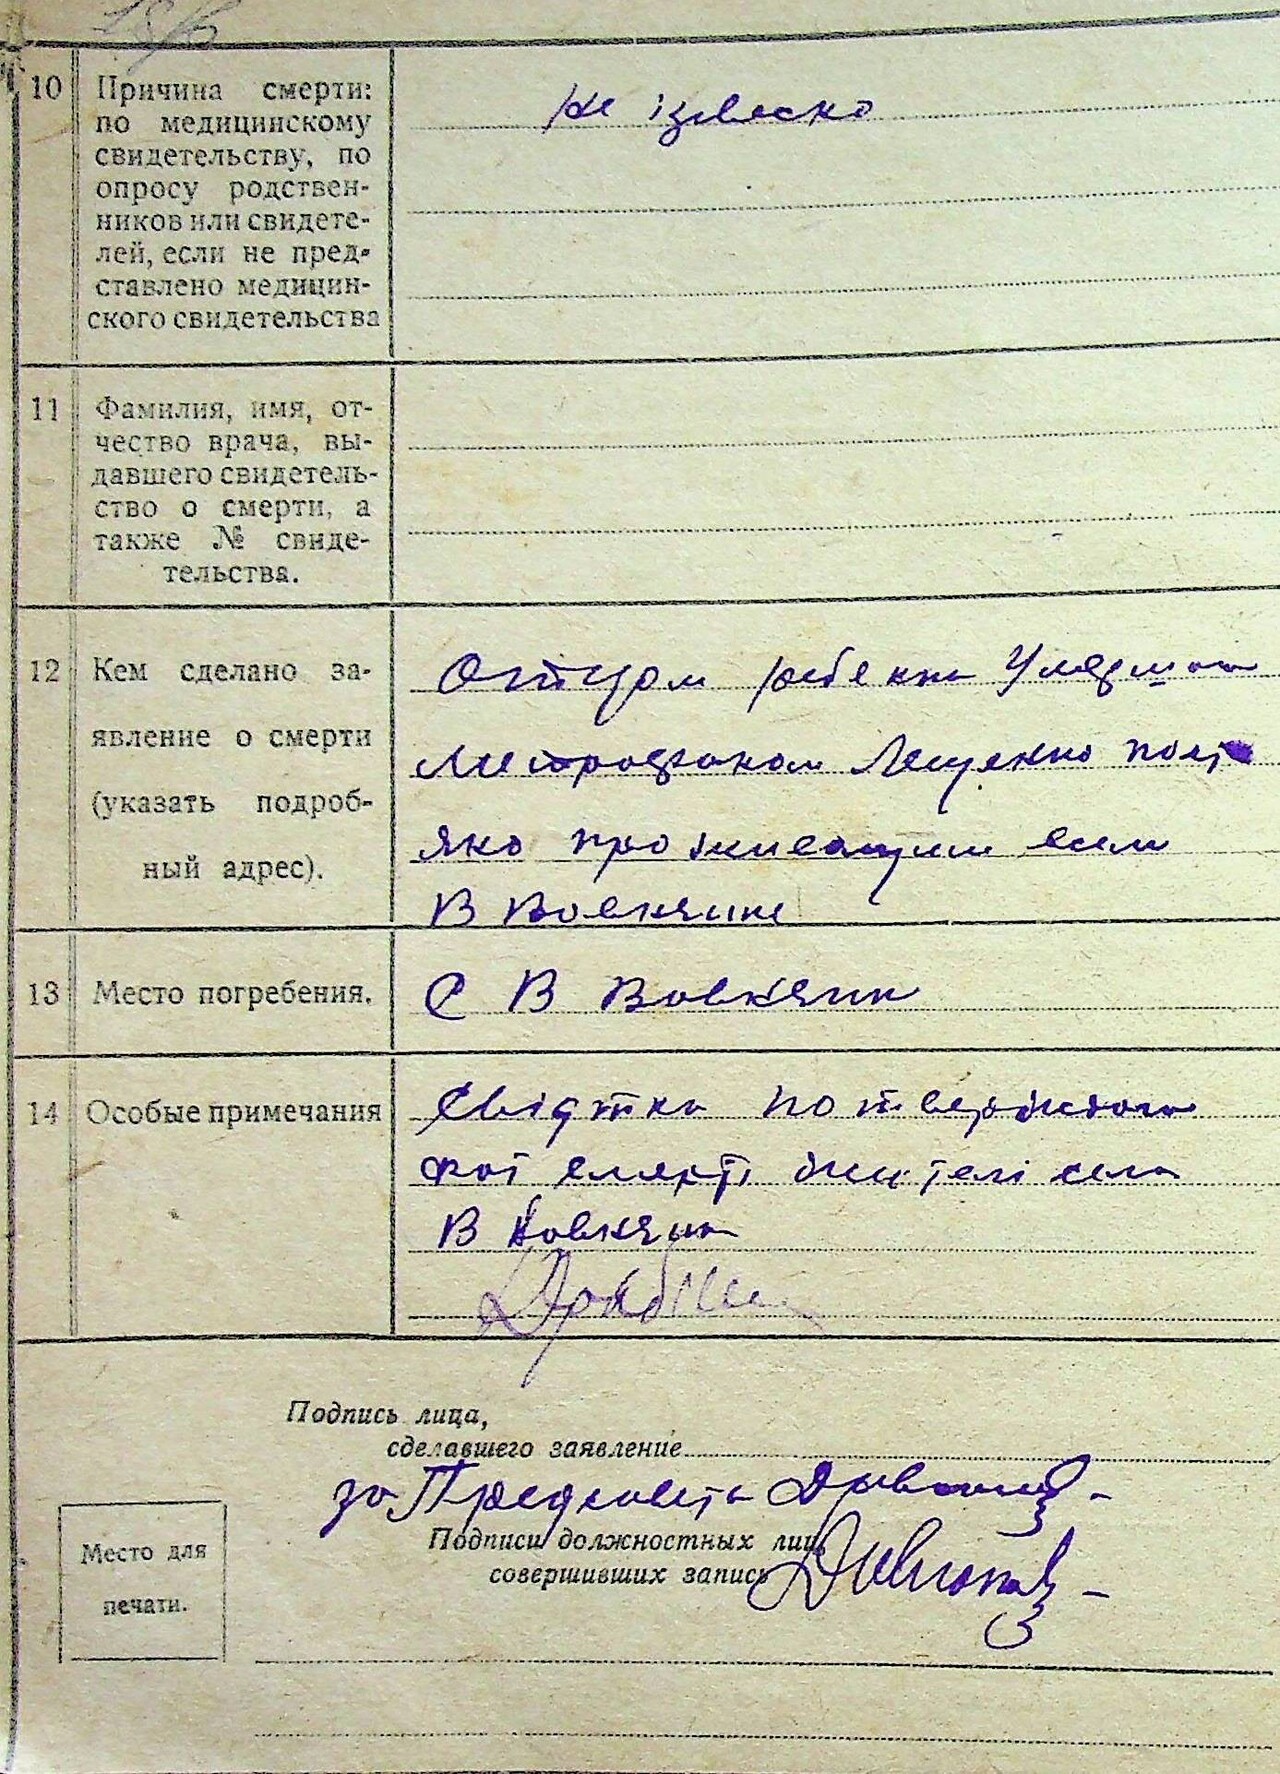 10 Причина смерти:
по медицинскому
свидетельству, по
опросу родствен-
ников или свидете-
лей, если не пред-
ставлено медицин-
ского свидетельства
Не ізвеско
11 Фамилия, имя, от-
чество врача, вы-
давшего свидетель-
ство о смерти, а
также № свиде-
тельства.
12 Кем сделано за-
явление о смерти
(указать подроб-
ный адрес).
Оттцом
Митрофаном Лещенко
яко проживающим
В Вовкянин
13 Место погребения.
С В Вовкянин
14 Особые примечания
Свідтка
смерті жителі села
В Вовкянин
Подпись лица,
сделавшего заявление
за Предсовета
Подписи должностных лиц,
совершивших запись
Место для
печати.